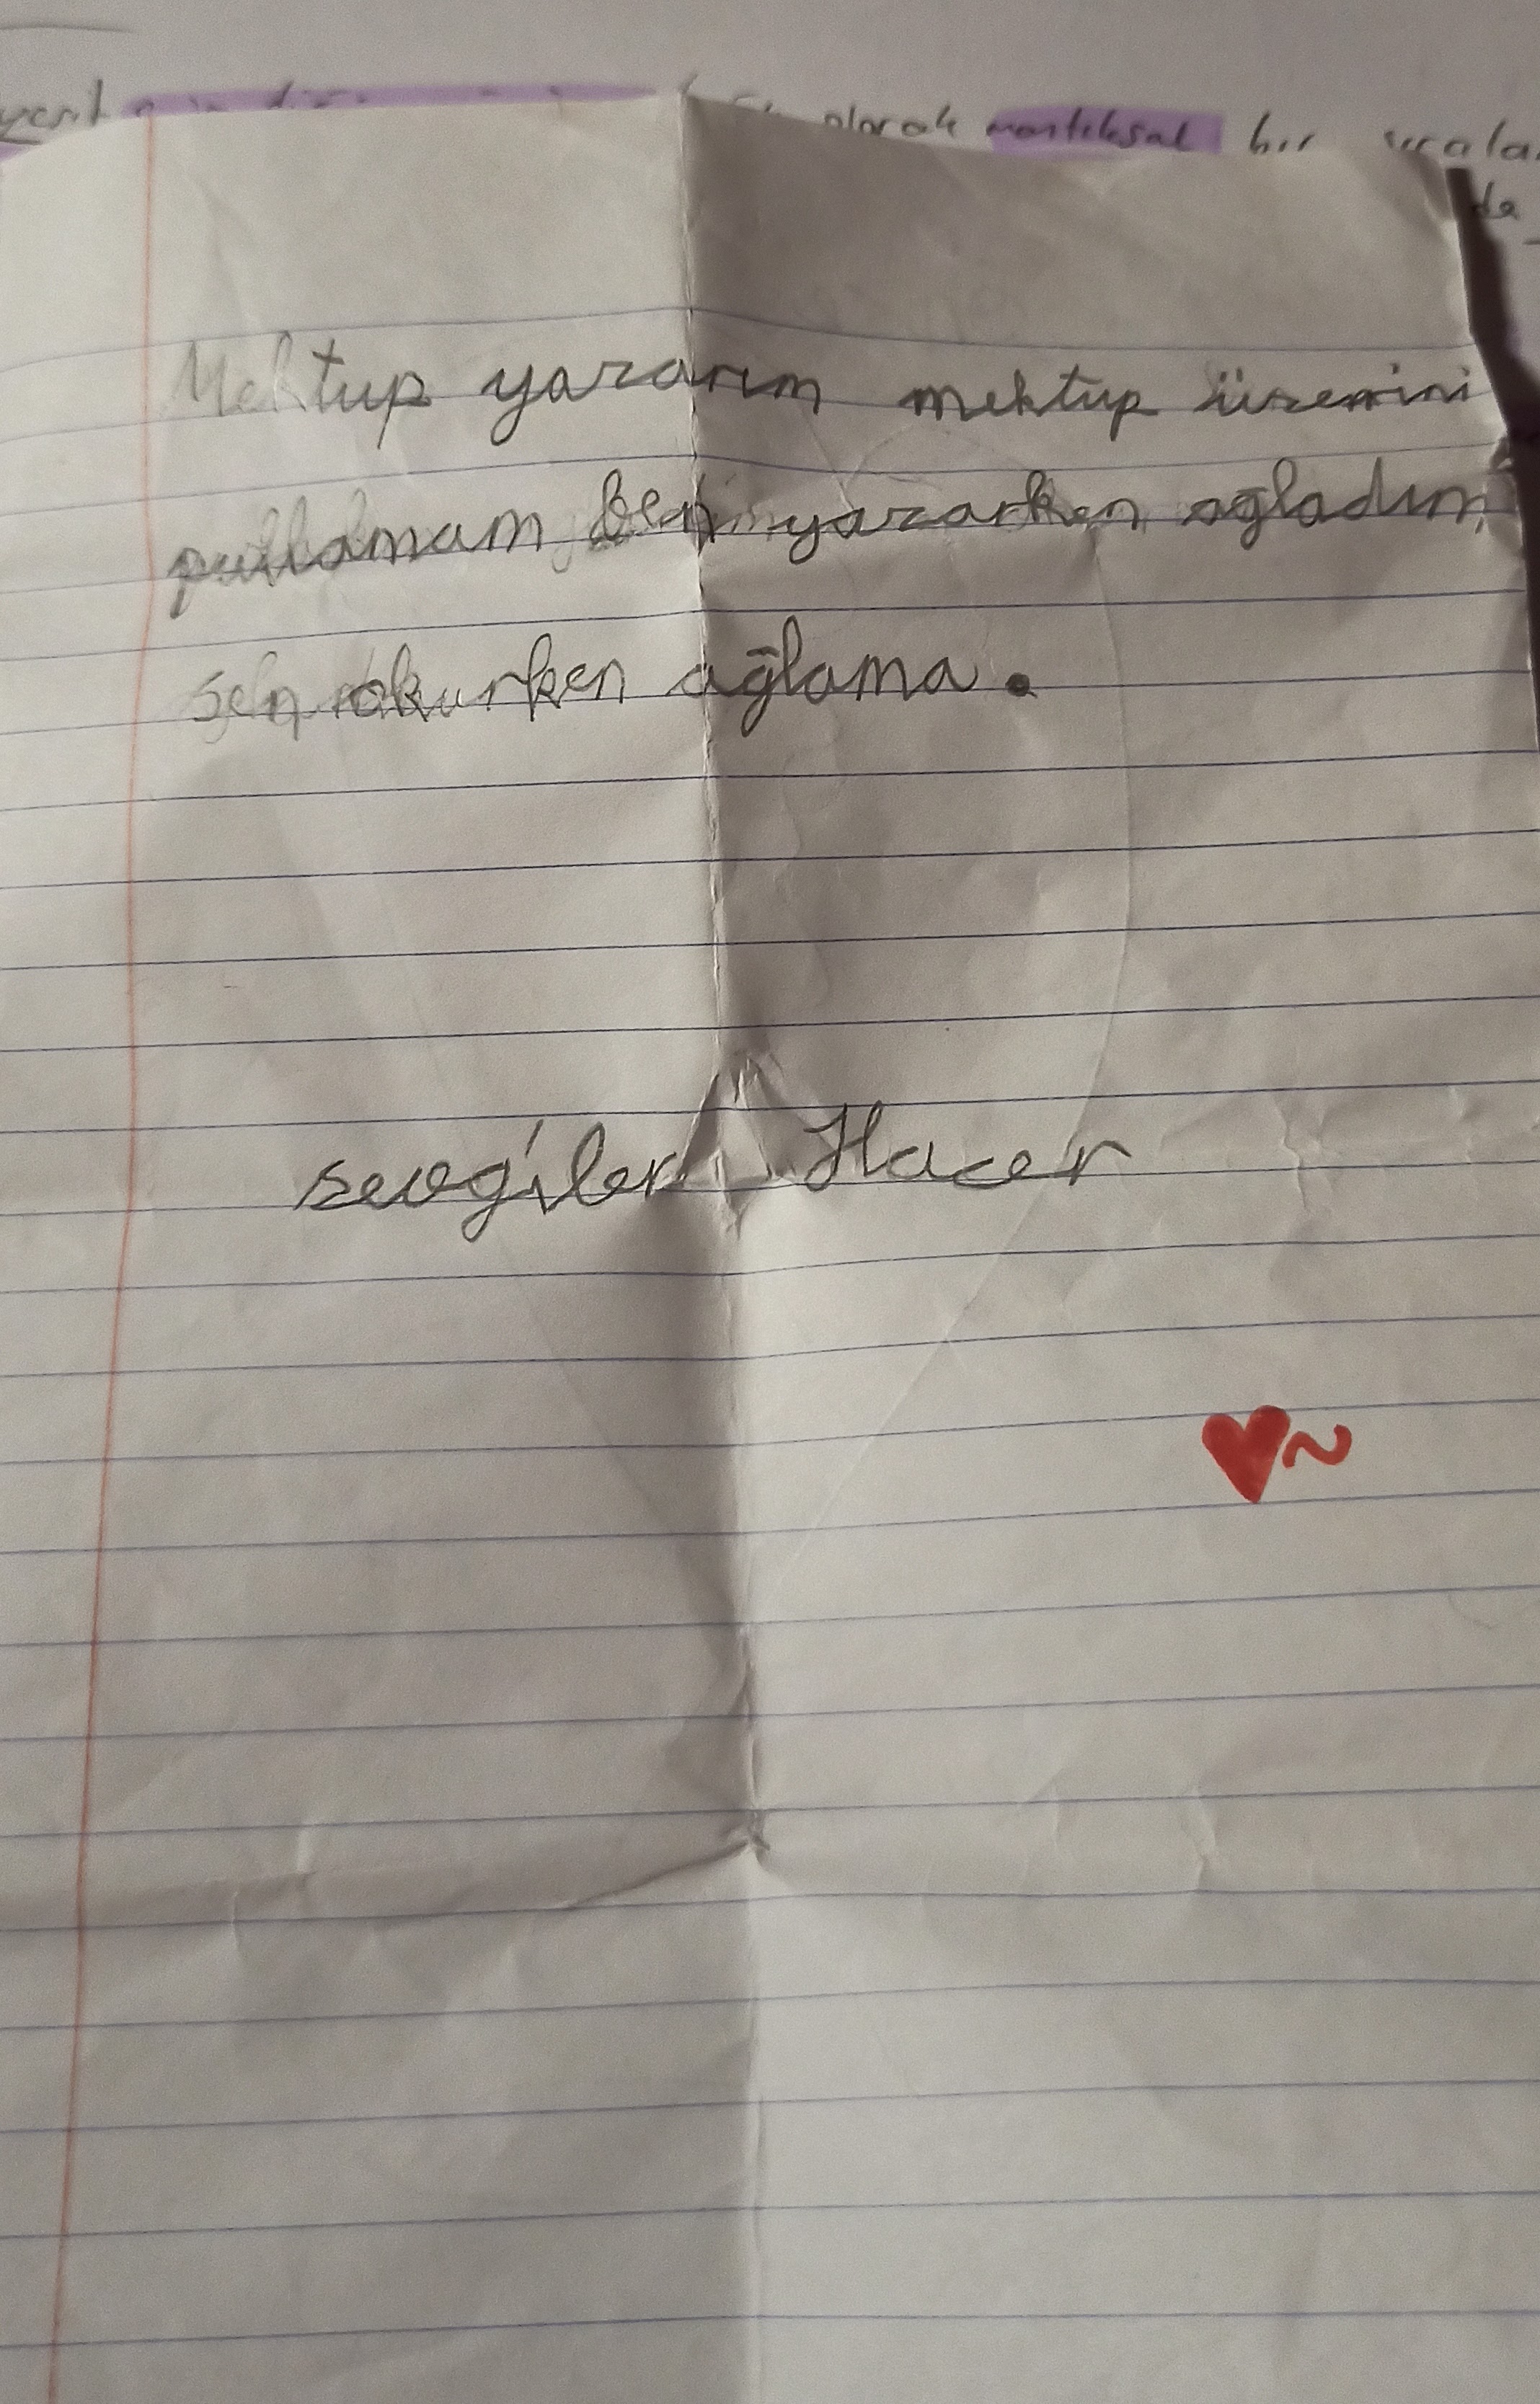 olarak mantıksal bir sırala
da
Mektup yazarım mektup üzerini
pullamam ben yazarken ağladım
sen okurken ağlama.
sevgiler Hacer